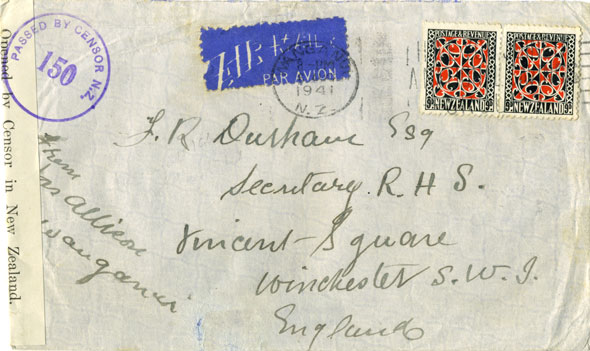 PASSED BY CENSOR N.Z.
150
Opened by Censor in New Zealand.
AIR MAIL
PAR AVION
1941
N.Z.
POSTAGE & REVENUE
9D NEW ZEALAND 9D
POSTAGE & REVENUE
9D NEW ZEALAND 9D
F. R. Durham Esq
Secretary. R. H. S.
Vincent-Square
Winchester S. W. I.
England
From
Allison
Wanganui